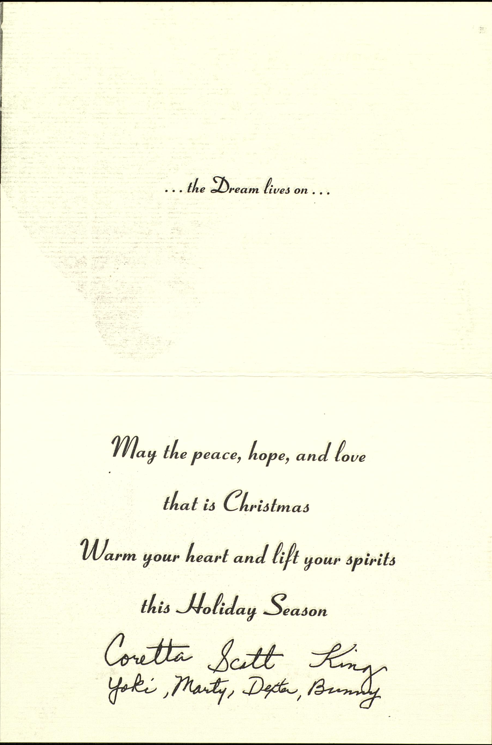 ...the Dream lives on...
May the peace, hope, and love
that is Christmas
Warm your heart and lift your spirits
this Holiday Season
Coretta Scott King
Yoki, Marty, Dexter, Bunny